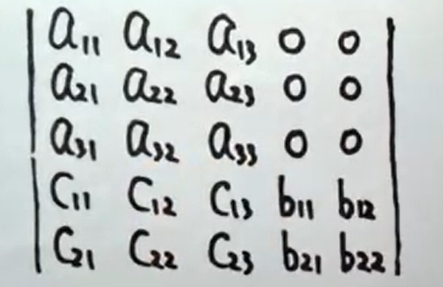 a₁₁ a₁₂ a₁₃ 0 0
a₂₁ a₂₂ a₂₃ 0 0
a₃₁ a₃₂ a₃₃ 0 0
C₁₁ C₁₂ C₁₃ b₁₁ b₁₂
C₂₁ C₂₂ C₂₃ b₂₁ b₂₂